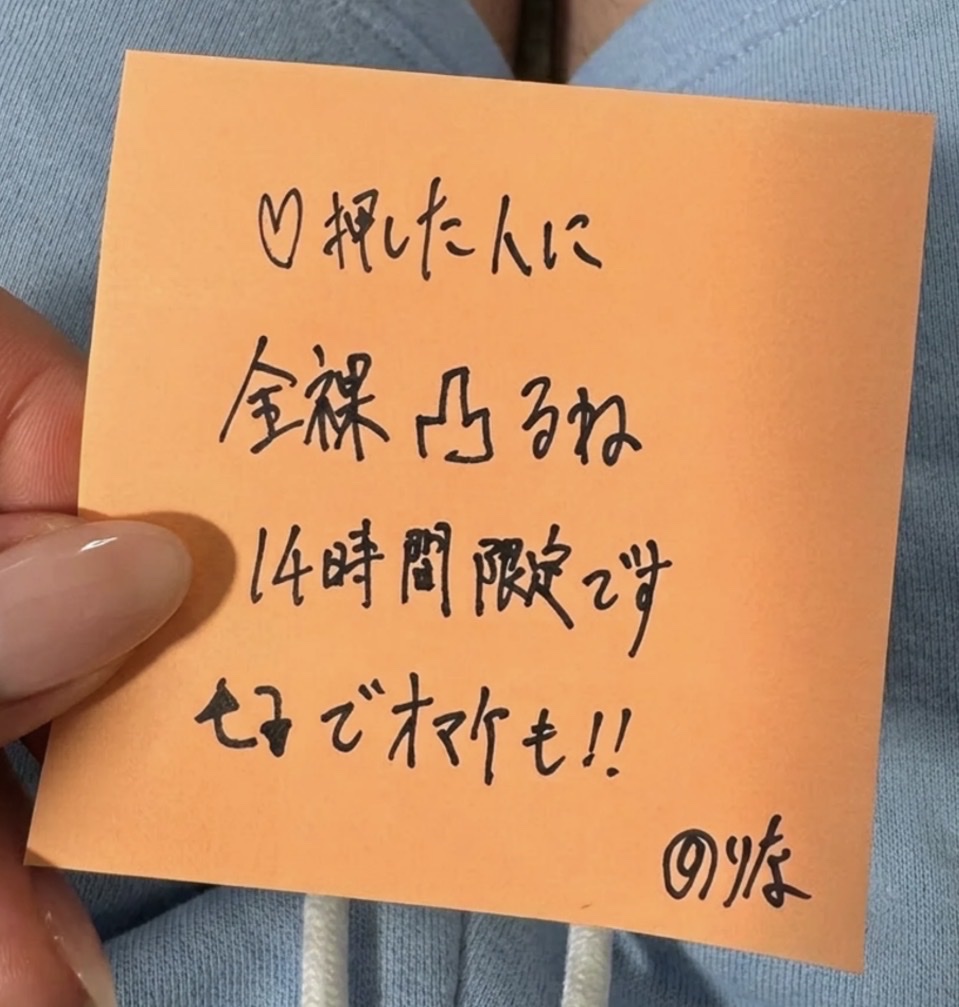 ♡押した人に
全裸凸るね
14時間限定です
でオマケも!!
のりな